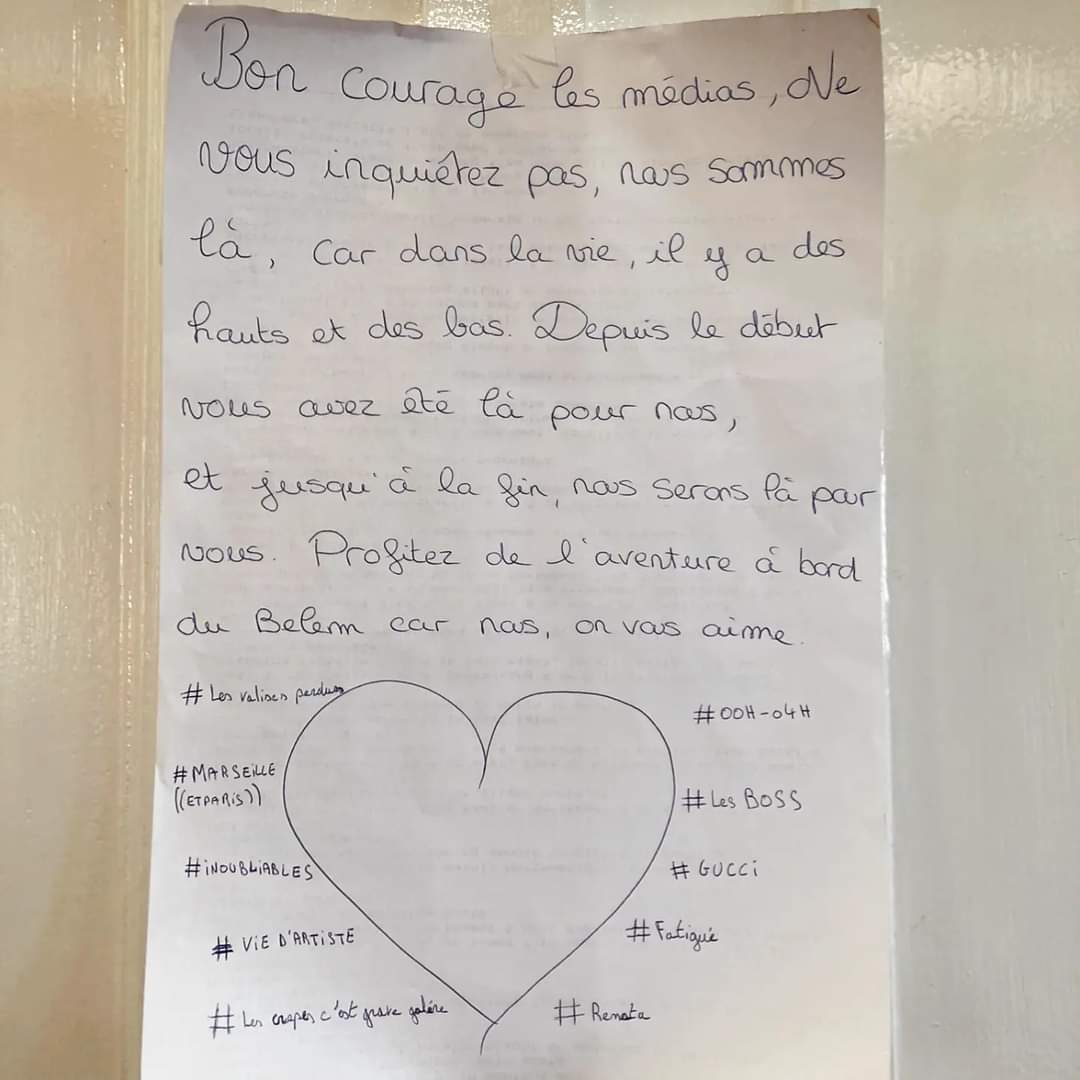 Bon courage les médias, Ne
vous inquiétez pas, nous sommes
là, car dans la vie, il y a des
hauts et des bas. Depuis le début
vous avez été là pour nous,
et jusqu'à la fin, nous serons là pour
vous. Profitez de l'aventure à bord
du Belem car nous, on vous aime.
#Les valises perdues
#00H-04H
#MARSEILLE
((ET PARIS))
#Les BOSS
#INOUBLIABLES
#GUCCI
#VIE D'ARTISTE
#Fatigué
#Les crapes c'est grave galère
#Renata